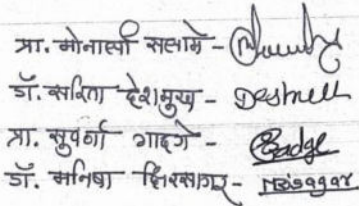 प्रा. मोनाली सलामे -
डॉ. सरिता देशमुख - Deshmukh
प्रा. सुवर्णा गाडगे - Gadge
डॉ. मनिषा क्षिरसागर -